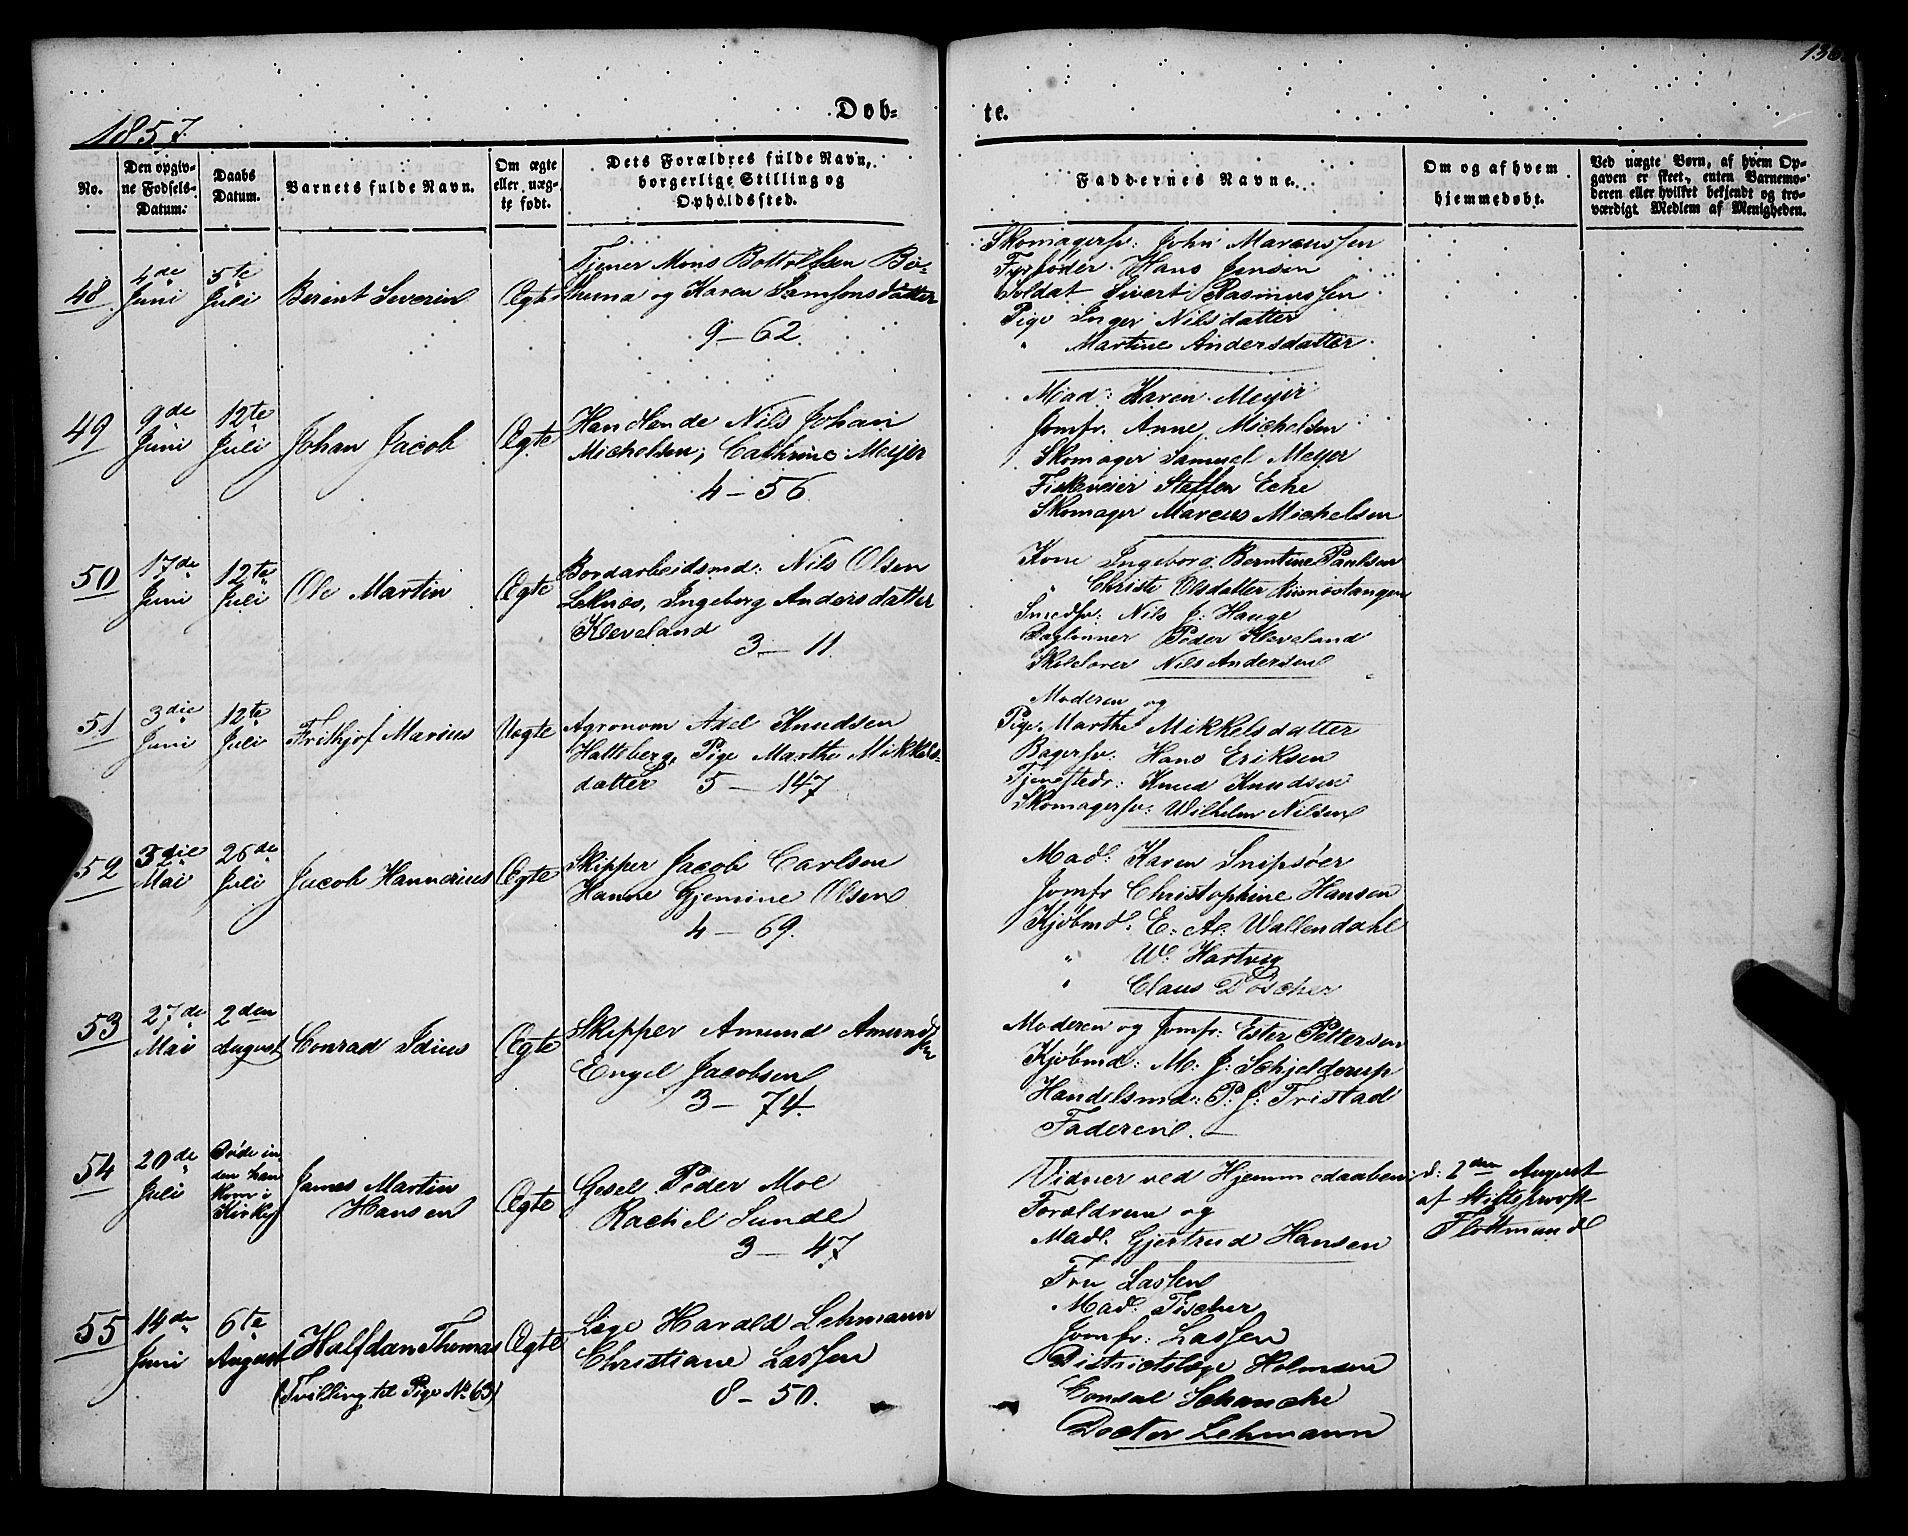 136
1857.
Døb-
te.
No.
Den opgiv-
ne Fødsels-
Datum.
Daabs
Datum.
Barnets fulde Navn.
Om ægte
eller uæg-
te født.
Dets Forældres fulde Navn,
borgerlige Stilling og
Opholdssted.
Faddernes Navne.
Om og af hvem
hjemmedøbt.
Ved uægte Børn, af hvem Op-
gaven er skeet, enten Barnemo-
deren eller hvilket bekjendt og tro-
værdigt Medlem af Menigheden.
48
4de
Juni
5te
Juli
Berent Severin
Ægte
Tjener Mons Bottolfsen
og Karen Samsonsdatter
9 - 62.
Skomagersv: John Marcussen
Fyrbøder Hans Jensen
Soldat Sivert Rasmussen
Pige Inger Nilsdatter
" Martine Andersdatter
49
9de
Juni
12te
Juli
Johan Jacob
Ægte
Handlende Nils Johan
Michelsen, Cathrine Meyer
4 - 56.
Mad: Karen Meyer
Jomfr. Anne Michelsen
Skomager Samuel Meyer
Fiskeveier Steffen Eche
Skomager Marcus Michelsen
50
17de
Juni
12te
Juli
Ole Martin
Ægte
Bordarbeidsmd: Nils Olsen
Leknes, Ingeborg Andersdatter
Kleveland
3 - 11.
Kone Ingeborg Berntine Paulsen
" Christi Olsdatter
Smedsv: Nils J: Hauge
Daglønner Peder Kleveland
Skolelærer Nils Andersen
51
3die
Juni
12te
Juli
Frithjof Marius
Uægte
Agronom Axel Knudsen
Haltsberg, Pige Marthe Mikkels-
datter 5 - 147
Moderen og
Pige Marthe Mikkelsdatter
Bagersv: Hans Eriksen
Tjenestedr: Knud Knudsen
Skomagersv: Wilhelm Nilsen
52
3die
Mai
26de
Juli
Jacob Hannerius
Ægte
Skipper Jacob Carlsen
Hanne Gjemine Olsen
4 - 69.
Mad: Karen Snipsøer
Jomfr Christophine Hansen
Kjøbmd: E. A. Wallendahl
" W. Hartvig
" Claus Döscher
53
27de
Mai
2den
August
Conrad Idius
Ægte
Skipper Amund Amund
sen
Engel Jacobsen
3 - 74
Moderen og Jomfr: Ester Pettersen
Kjøbmd: M. J. Schjelderup
Handelsmd: P. J. Tristad
Faderen. -
54
20de
Juli
Døde in
den han
kom i
Kirke
James Martin
Hansen
Ægte
Gesel Peder Moe
Rachel Sunde
3 - 47
Vidner ved Hjemmedaaben:
Forældrene og
Mad. Gjertrud Hansen
d: 2den August
af Stiftsprovst
Flottmand
55
14de
Juni
6te
August
Halfdan Thomas
(Tvilling til Pige No 63)
Ægte
Læge Harald Lehmann
Christiane Lassen
8 - 50.
Fru Lassen
Mad: Fischer
Jomfr: Lassen
Districtslæge Holmsen
Consul Schancke
Doctor Lehmann